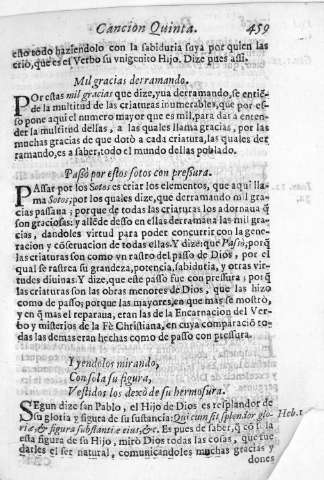 Cancion Quinta. 459
esto todo haziendolo con la sabiduria suya por quien las
criò, que es el Verbo su vnigenito Hijo. Dize pues assi.
Mil gracias derramando.
POr estas mil gracias que dize, yua derramando, se entiē-
de la multitud de las criaturas inumerables, que por es-
so pone aqui el numero mayor que es mil, para dar a enten-
der la multitud dellas, a las quales llama gracias, por las
muchas gracias de que dotò a cada criatura, las quales der
ramando, es a saber, todo el mundo dellas poblado.
Passò por estos sotos con pressura.
PAssar por los Sotos es criar los elementos, que aqui lla-
ma Sotos, por los quales dize, que derramando mil gra-
cias passaua; porque de todas las criaturas los adornaua q̄
son graciosos: y allēde desso en ellas derramaua las mil gra-
cias, dandoles virtud para poder concurrir con la gene-
racion y cōseruacion de todas ellas. Y dize: que Passò, porq̄
las criaturas son como vn rastro del passo de Dios, por el
qual se rastrea su grandeza, potencia, sabiduria, y otras vir-
tudes diuinas. Y dize, que este passo fue con pressura; porq̄
las criaturas son las obras menores de Dios, que las hizo
como de passo; porque las mayores, en que mas se mostrò,
y en q̄ mas el reparaua, eran las de la Encarnacion del Ver-
bo y misterios de la Fè Christiana, en cuya comparaciō to-
das las demas eran hechas como de passo con pressura.
I yendolos mirando,
Con sola su figura,
Vestidos los dexò de su hermosura.
SEgun dize san Pablo, el Hijo de Dios es resplandor de
su gloria y figura de su sustancia: Qui cum sit splendor glo- Heb. 1
riæ, & figura substantiæ eius, &c. Es pues de saber, q̄ cō sola
esta figura de su Hijo, mirò Dios todas las cosas, que fue
darles el ser natural, comunicandoles muchas gracias y
dones